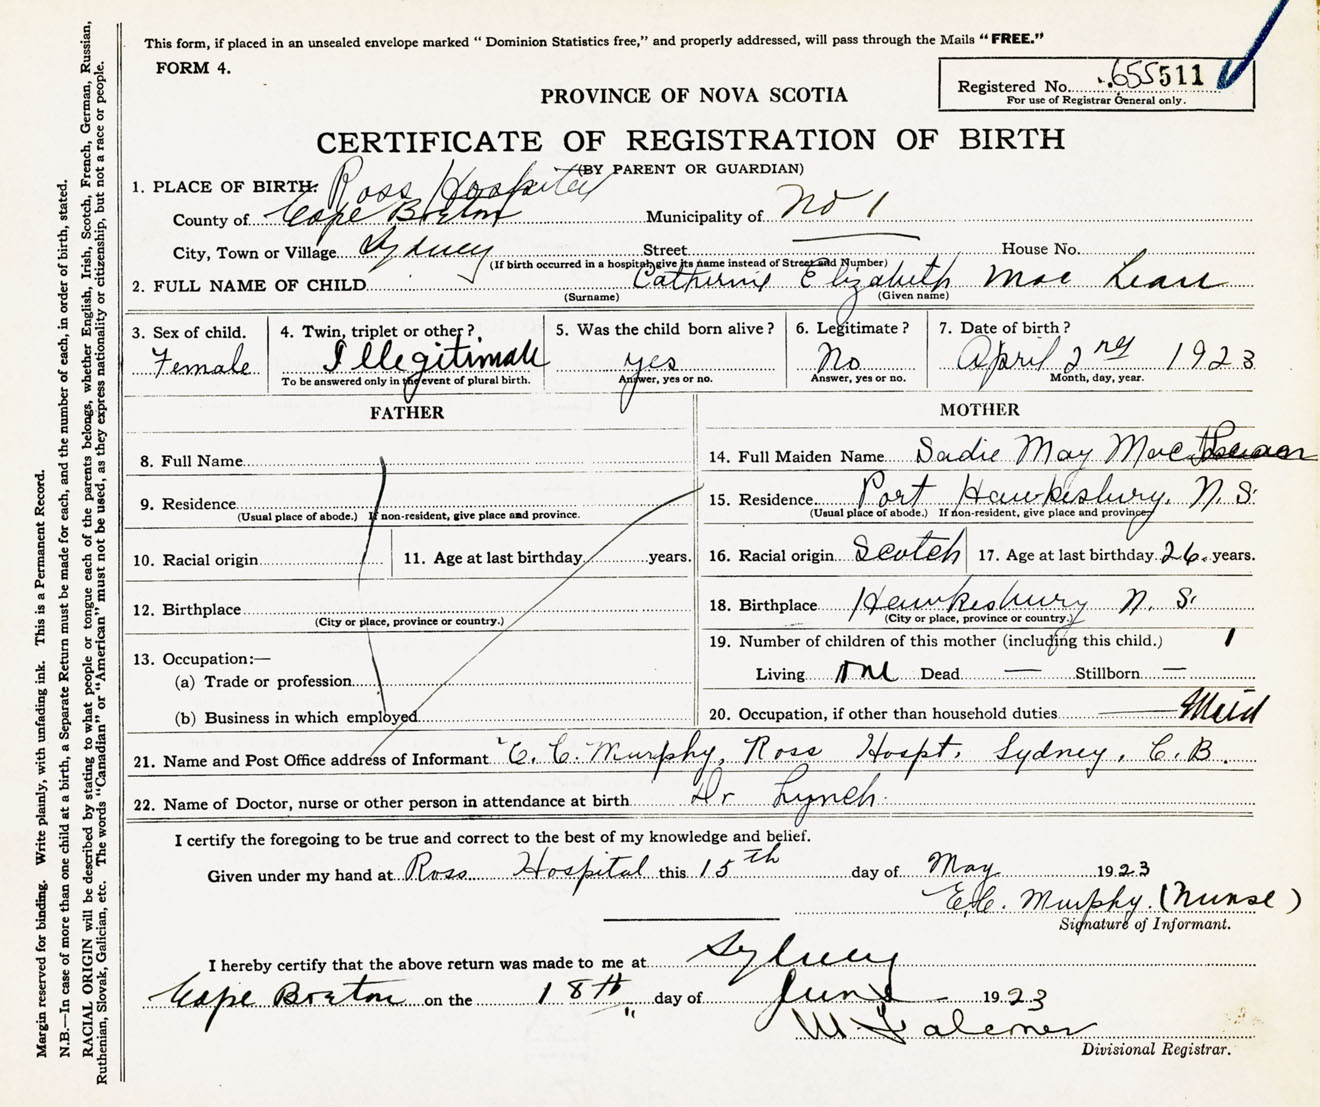 This form, if placed in an unsealed envelope marked “ Dominion Statistics free,” and properly addressed, will pass through the Mails “FREE.”
FORM 4.
Registered No. 655511
For use of Registrar General only.
PROVINCE OF NOVA SCOTIA
CERTIFICATE OF REGISTRATION OF BIRTH
(BY PARENT OR GUARDIAN)
1. PLACE OF BIRTH: Ross Hospital
County of Cape Breton Municipality of No 1
City, Town or Village Sydney Street House No.
(If birth occurred in a hospital, give its name instead of Street and Number)
2. FULL NAME OF CHILD Catherine Elizabeth Mac Lean
(Surname) (Given name)
3. Sex of child. 4. Twin, triplet or other? 5. Was the child born alive? 6. Legitimate? 7. Date of birth?
Female Illegitimate yes No April 2nd 1923
To be answered only in the event of plural birth. Answer, yes or no. Answer, yes or no. Month, day, year.
FATHER
8. Full Name
9. Residence
(Usual place of abode.) If non-resident, give place and province.
10. Racial origin 11. Age at last birthday years.
12. Birthplace
(City or place, province or country.)
13. Occupation:—
(a) Trade or profession
(b) Business in which employed
MOTHER
14. Full Maiden Name Sadie May Mac
15. Residence Port Hawkesbury, N.S.
(Usual place of abode.) If non-resident, give place and province.
16. Racial origin Scotch 17. Age at last birthday 26 years.
18. Birthplace Hawkesbury N. S.
(City or place, province or country.)
19. Number of children of this mother (including this child.) 1
Living one Dead — Stillborn —
20. Occupation, if other than household duties Maid
21. Name and Post Office address of Informant E. C. Murphy, Ross Hospt, Sydney, C.B.
22. Name of Doctor, nurse or other person in attendance at birth Dr Lynch
I certify the foregoing to be true and correct to the best of my knowledge and belief.
Given under my hand at Ross Hospital this 15th day of May 1923
E.C. Murphy. (Nurse)
Signature of Informant.
I hereby certify that the above return was made to me at Sydney
Cape Breton on the 18th day of June 1923
Divisional Registrar.
Margin reserved for binding. Write plainly, with unfading ink. This is a Permanent Record.
N.B.—In case of more than one child at a birth, a Separate Return must be made for each, and the number of each, in order of birth, stated.
RACIAL ORIGIN will be described by stating to what people or tongue each of the parents belongs, whether English, Irish, Scotch, French, German, Russian,
Ruthenian, Slovak, Galician, etc. The words “Canadian” or “American” must not be used, as they express nationality or citizenship, but not a race or people.